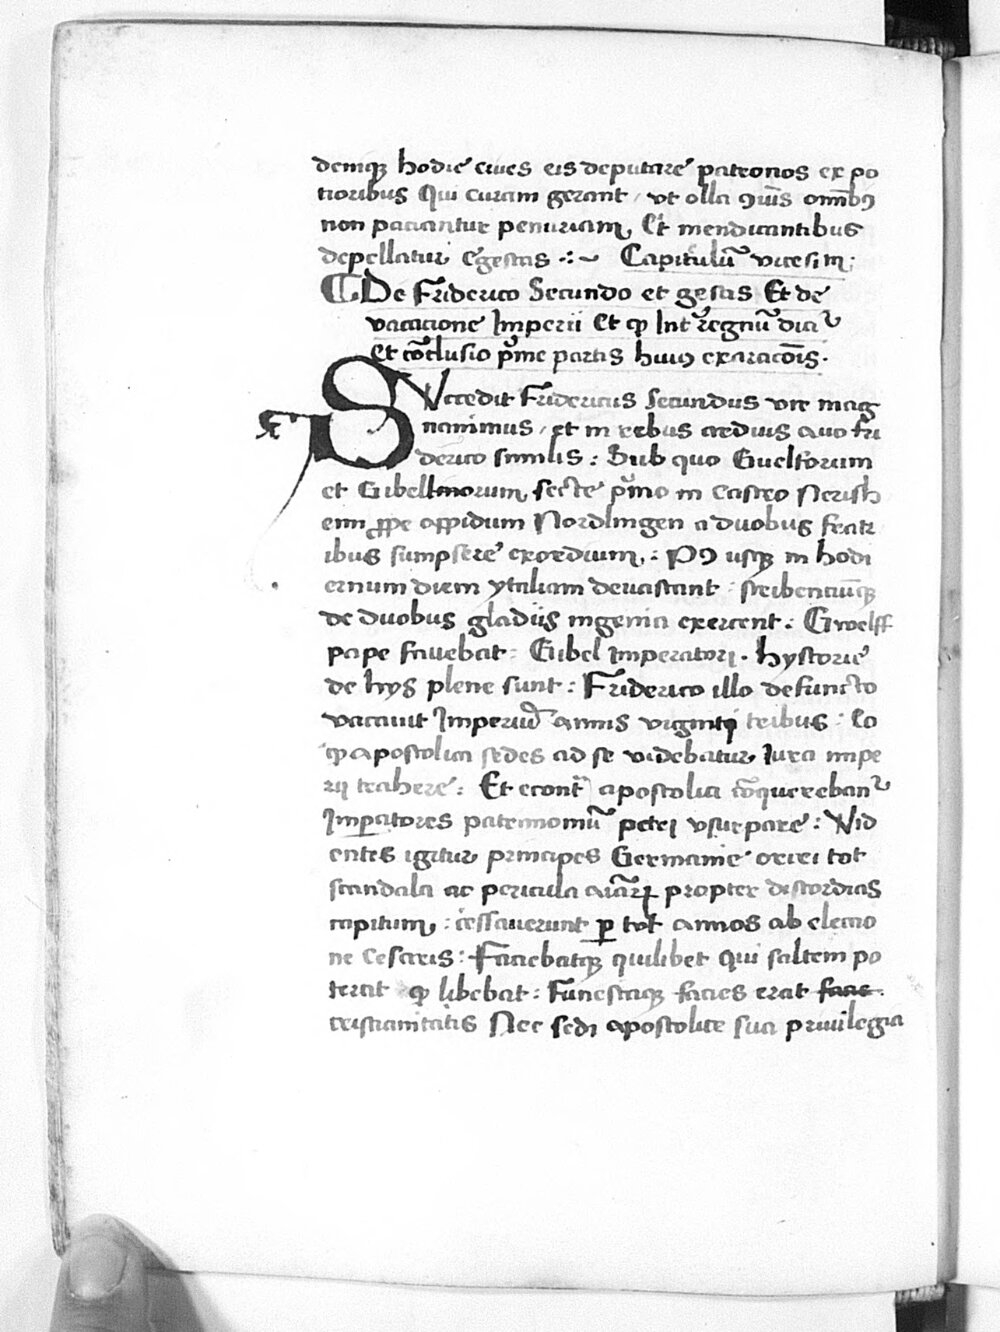 demqꝫ hodie ciues eis deputare patronos ex po
tioribus Qui curam gerant / vt olla ꝯiu̅s omn̅ibꝯ
non paciantur penuriam, Et mendicantibus
depellatur Egestas .:~ Capitulu̅ vicesim;
De Friderico Secundo et gestis Et de
vacacione Imperii Et ꝙ Int̓regnu̅ dicit᷑
et co̅clusio p͛me partis huiꝯ exaraco̅is.
SVccedit Fridericus secundus vir mag
nanimus / et in rebus arduis auo fri
derico similis : Sub quo Guelforum
et Gibellinorum secte p͛imo in Castro Nerish
eim ꝓpe oppidum Nordlingen a duobus fratr
ibus sumpsere exordium, : Pꝯ usqꝫ in hodi
ernum diem ytaliam deuastant : scribenciu̅qꝫ
de duobus gladiis ingenia exercent : Gwelff
pape fauebat : Gibel Imperatori . hystorie
de hys plene sunt : Friderico illo defuncto
vacauit Imperiu̅ annis viginti tribus : Eo
ꝙ apostolica sedes ad se videbatur Iura impe
rij trahere : Et econt̓ apostolica co̅querebant᷑
Imꝑatores patrimoniu̅ petri vsurpare : Vid
entes igitur principes Germanie oriri tot
scandala ac pericula a̅i̅aꝝ propter discordias
capitum, : cessauerunt ꝑ tot annos ab electio
ne Cesaris : Faciebatqꝫ quilibet qui saltem po
terat ꝙ libebat : Funestaqꝫ facies erat
cristianitatis Nec sedi apostolice sua priuilegia